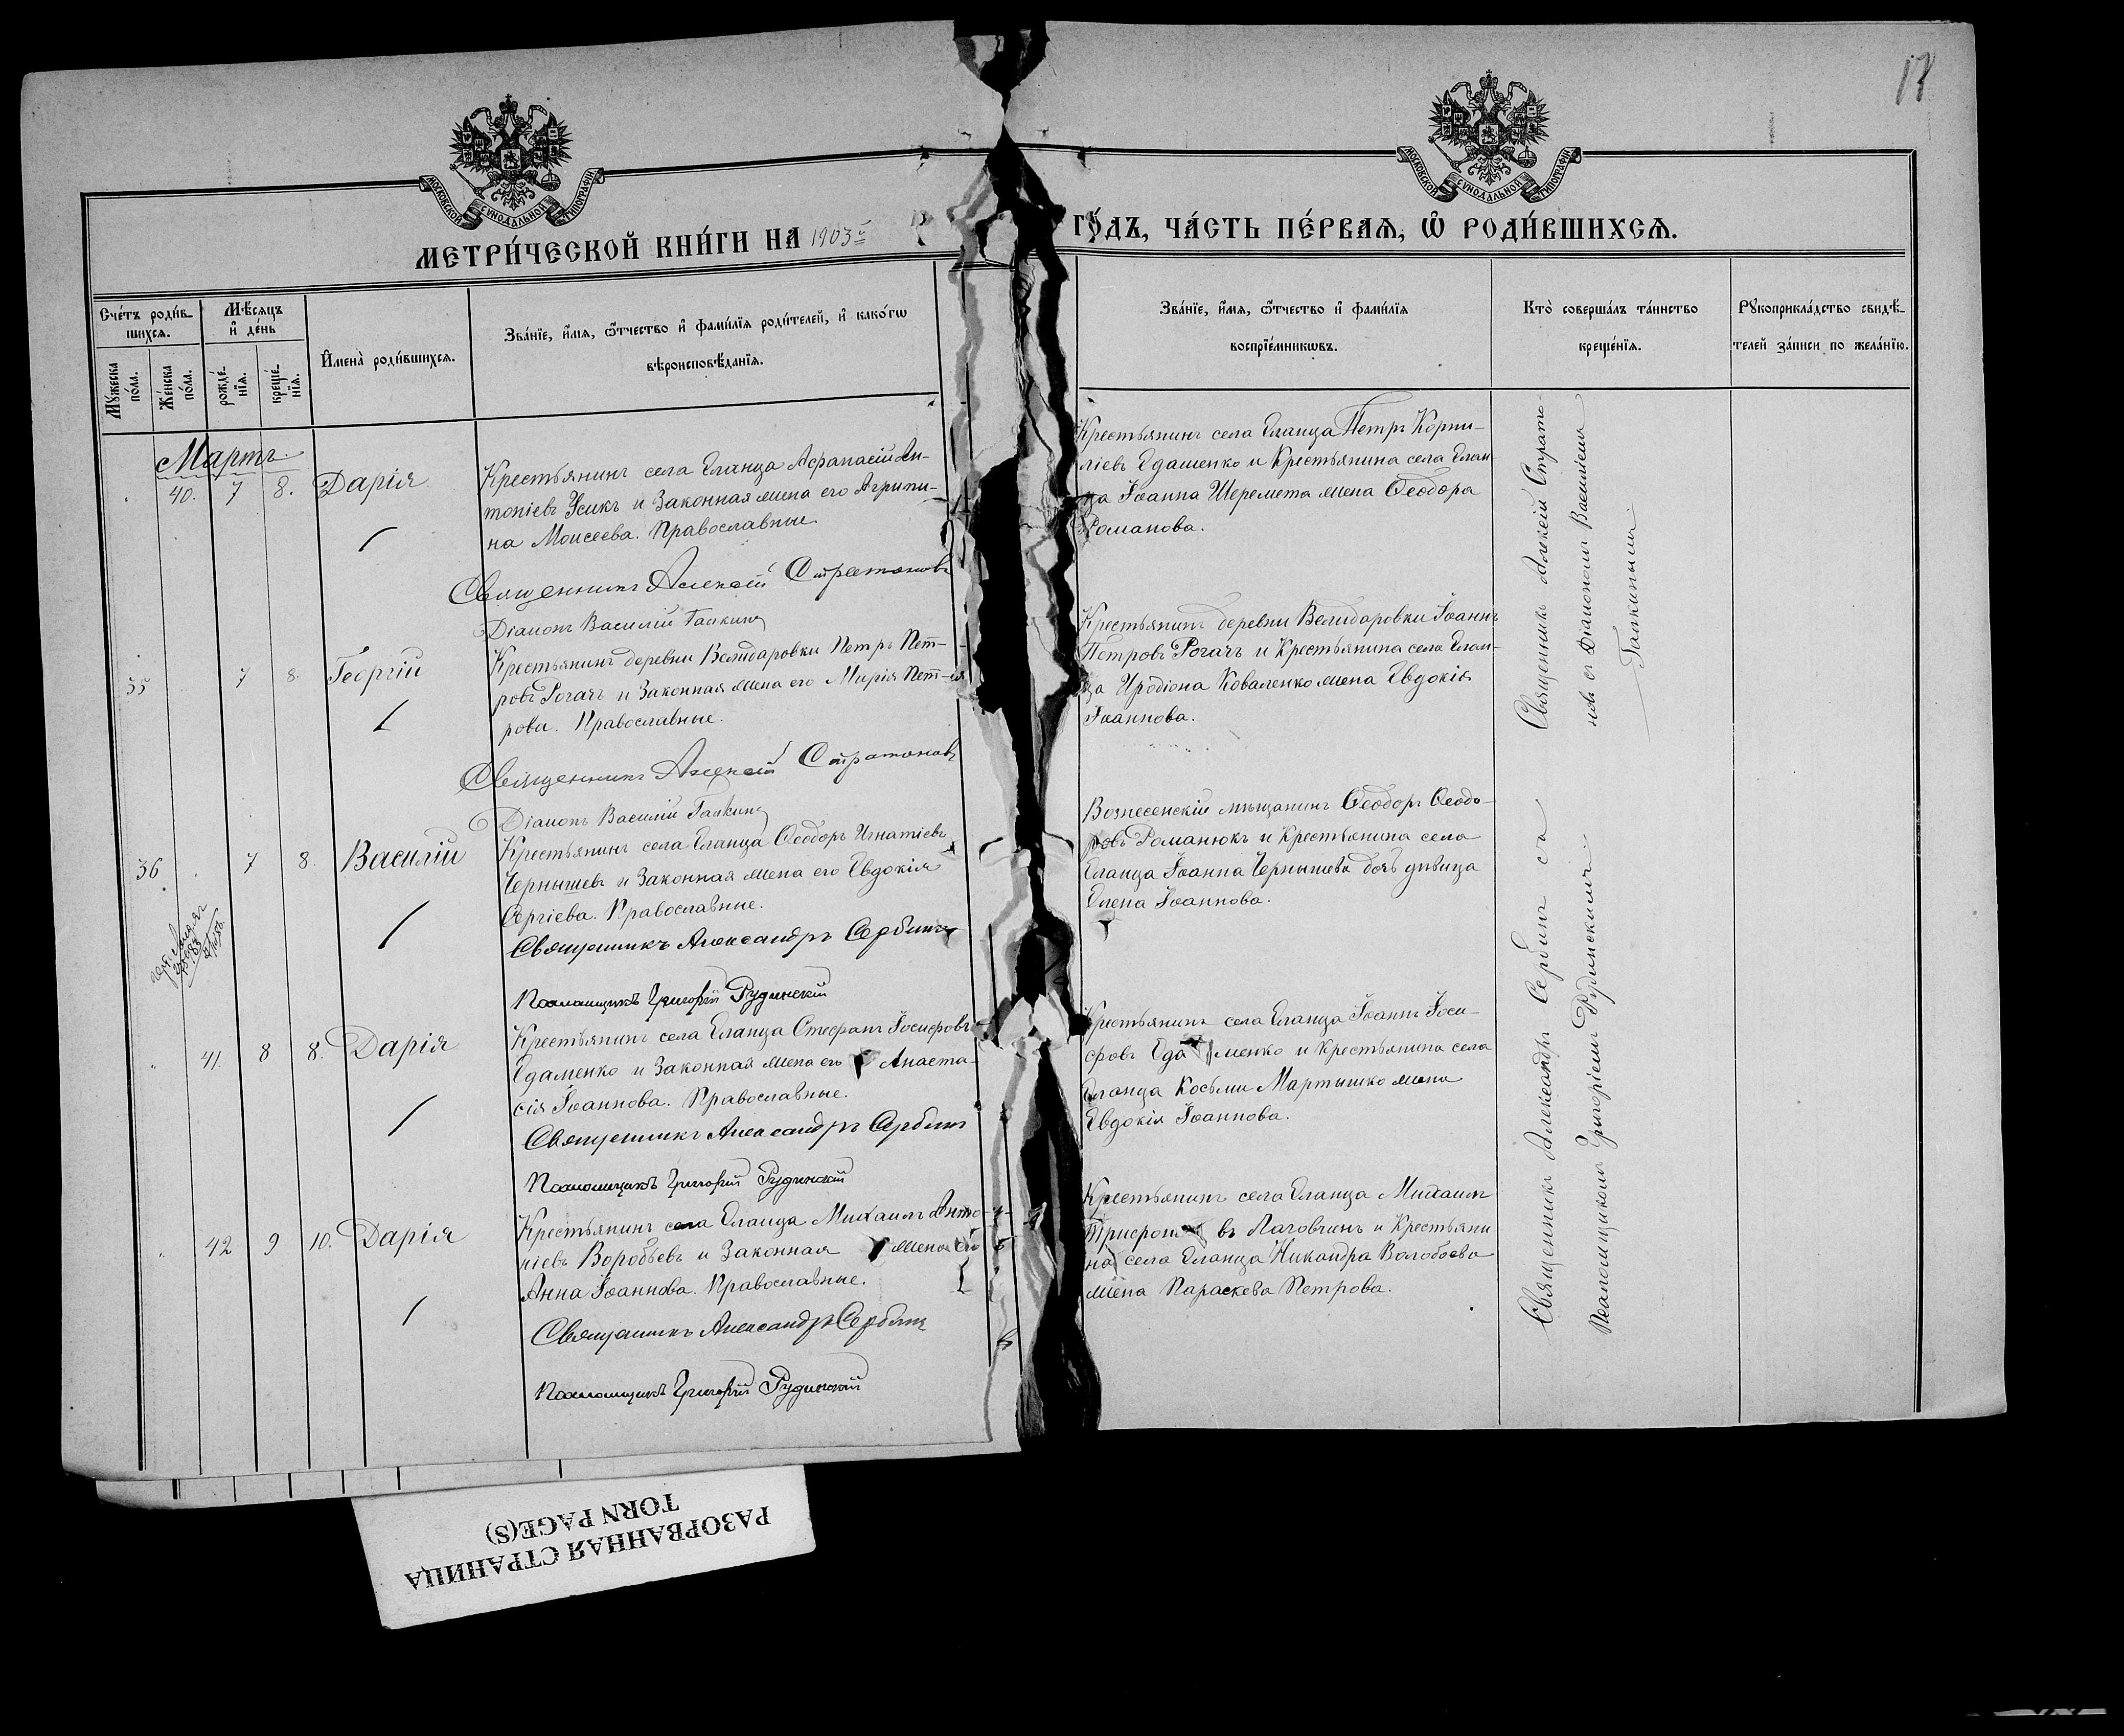 13
МОСКОВСКОЙ СѴНОДАЛЬНОЙ ТИПОГРАФІИ
МОСКОВСКОЙ СѴНОДАЛЬНОЙ ТИПОГРАФІИ
МЕТРИ́ЧЕСКОЙ КНИ́ГИ НА 1903й
ГО́ДЪ, ЧА́СТЬ ПЕ́РВАѦ, Ѽ РОДИ́ВШИХСѦ.
Сче́тъ роди́в-
шихсѧ.
Мꙋ́жеска по́ла.
Же́нска по́ла.
Мѣ́сѧцъ и҆ де́нь
рожде́-нїѧ.
креще́-нїѧ.
И҆мена̀ роди́вшихсѧ.
Зва́нїе, и҆́мѧ, ѻ҆́тчество и҆ фами́лїѧ роди́телей, и҆ како́гѡ
вѣроисповѣ́данїѧ.
Зва́нїе, и҆́мѧ, ѻ҆́тчество и҆ фами́лїѧ
воспрїе́мникѡвъ.
Кто̀ соверша́лъ та́инство
креще́нїѧ.
Рꙋкоприкла́дство свидѣ́-
телей за́писи по жела́нїю.
Мартъ.
40. 7 8. Дарія
Крестьянинъ села Еланца Афанасій Ан-
тоніевъ Усикъ и Законная жена его Агрипи-
на Моисеева. Православные
Священникъ Алексій Стратоновъ
Діаконъ Василій Галкинъ
Крестьянинъ села Еланца Петръ Корни-
ліевъ Едаменко и Крестьянина села Елан-
ца Іоанна Шеремета жена Ѳеодора
Романова.
35 7 8. Георгій
Крестьянинъ деревни Велидаровки Петръ Пет-
ровъ Рогачъ и Законная жена его Марія Пет-
рова. Православные.
Священникъ Алексій Стратоновъ
Діаконъ Василій Галкинъ
Крестьянинъ деревни Велидаровки Іоаннъ
Петровъ Рогачъ и Крестьянина села Елан-
ца Иродіона Коваленко жена Евдокія
Іоаннова.
36 7 8. Василій
Крестьянинъ села Еланца Ѳеодоръ Игнатіевъ
Чернышевъ и Законная жена его Евдокія
Сергіева. Православные.
Священникъ Александръ Сербинъ
Псаломщикъ Григорій Рудинскій
Вознесенскій мѣщанинъ Ѳеодоръ Ѳеодо-
ровъ Романюкъ и Крестьянина села
Еланца Іоанна Чернышева дочь дѣвица
Елена Іоаннова.
41. 8 8. Дарія
Крестьянинъ села Еланца Стефанъ Іосифовъ
Едаменко и Законная жена его Анаста-
сія Іоаннова. Православные.
Священникъ Александръ Сербинъ
Псаломщикъ Григорій Рудинскій
Крестьянинъ села Еланца Іоаннъ Іоси-
фовъ Едаменко и Крестьянина села
Еланца Косьмы Мартышко жена
Евдокія Іоаннова.
42 9 10. Дарія
Крестьянинъ села Еланца Михаилъ Анто-
ніевъ Воробьевъ и Законная жена его
Анна Іоаннова. Православные.
Священникъ Александръ Сербинъ
Псаломщикъ Григорій Рудинскій
Крестьянинъ села Еланца Михаилъ
въ Логовчинъ и Крестьяни
на села Еланца Никандра Волобоева
жена Параскева Петрова.
Священникъ Алексій Страто-
новъ съ Діакономъ Василіемъ
Галкинымъ.
Священникъ Александръ Сербинъ съ
Псаломщикомъ Григоріемъ Рудинскимъ.
РАЗОРВАННАЯ СТРАНИЦА
TORN PAGE(S)